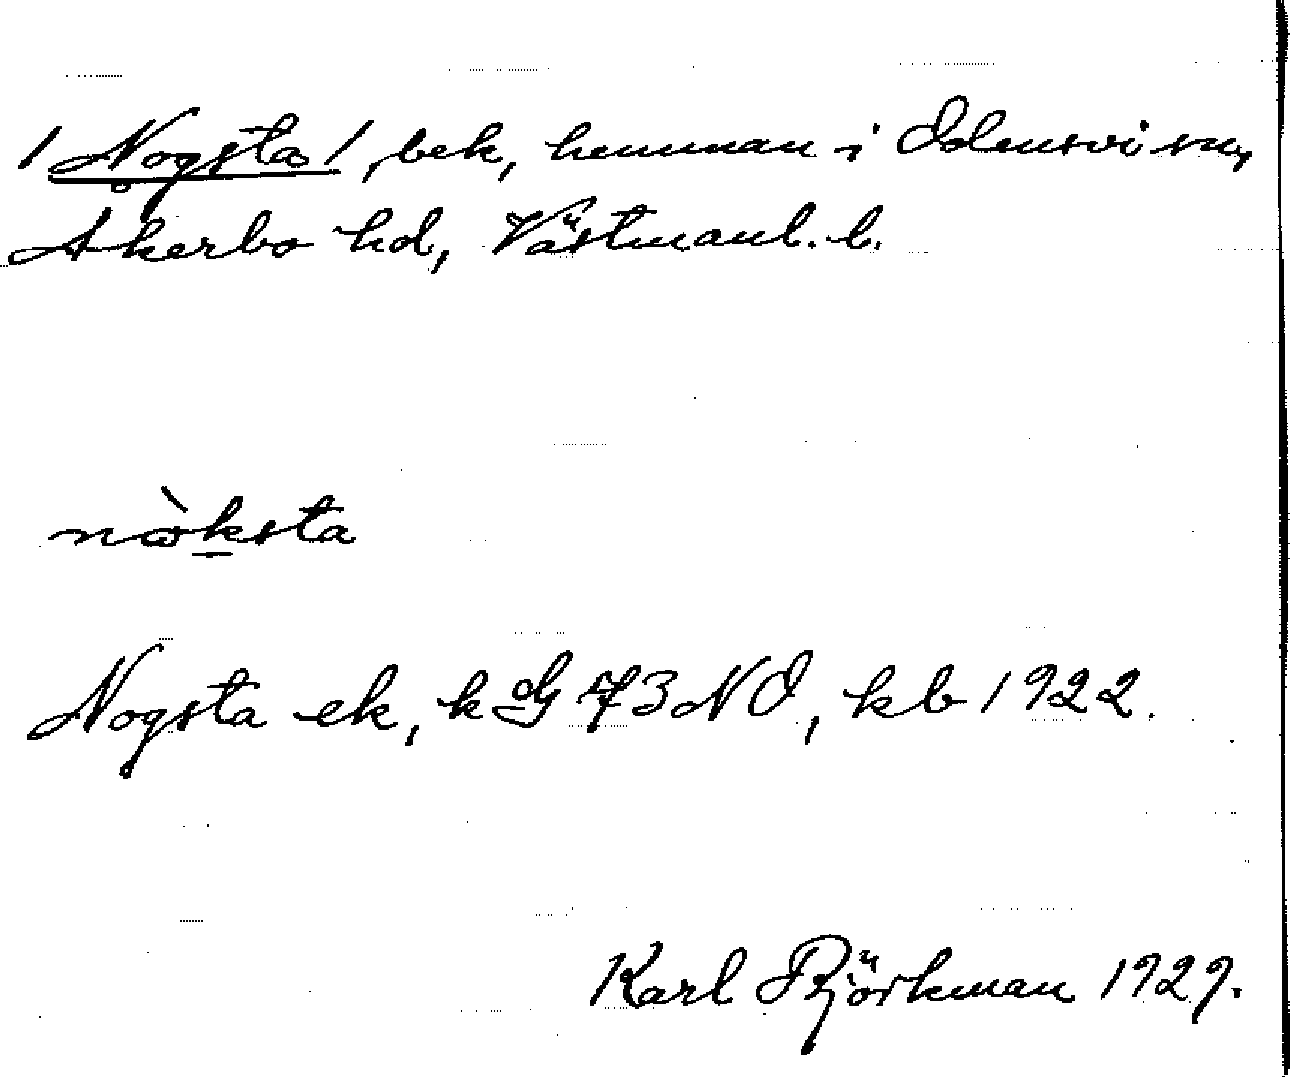 / Nogsta /, bek, hemman i Odensvi sn,
Åkerbo hd, Västmanl. l.
nòksta
Nogsta ek, k G 73 NO, kb 1922.
Karl Björkman 1929.